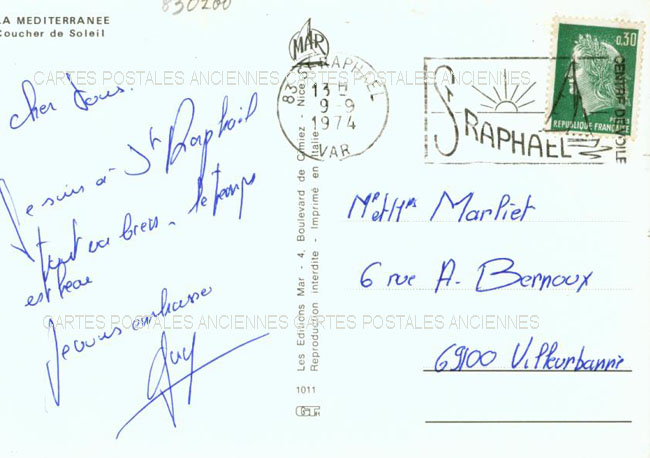 830200
LA MEDITERRANEE
Coucher de Soleil
CARTES POSTALES ANCIENNES CARTES POSTALES ANCIENNES
cher Tous.
Je suis à St Raphail
tout va bien - le temps
est beau
Je vous embrasse
Guy
Les Editions Mar - 4, Boulevard de Cimiez - Nice
Reproduction interdite - Imprimé en Italie
1011
MAR
83 ST RAPHAEL
13 H
9-9
1974
VAR
ST RAPHAEL
CENTRE DE VOILE
0,30
POSTES
REPUBLIQUE FRANÇAISE
Mr et Mme Marliet
6 rue A. Bernoux
69100 Villeurbanne
CARTES POSTALES ANCIENNES CARTES POSTALES ANCIENNES